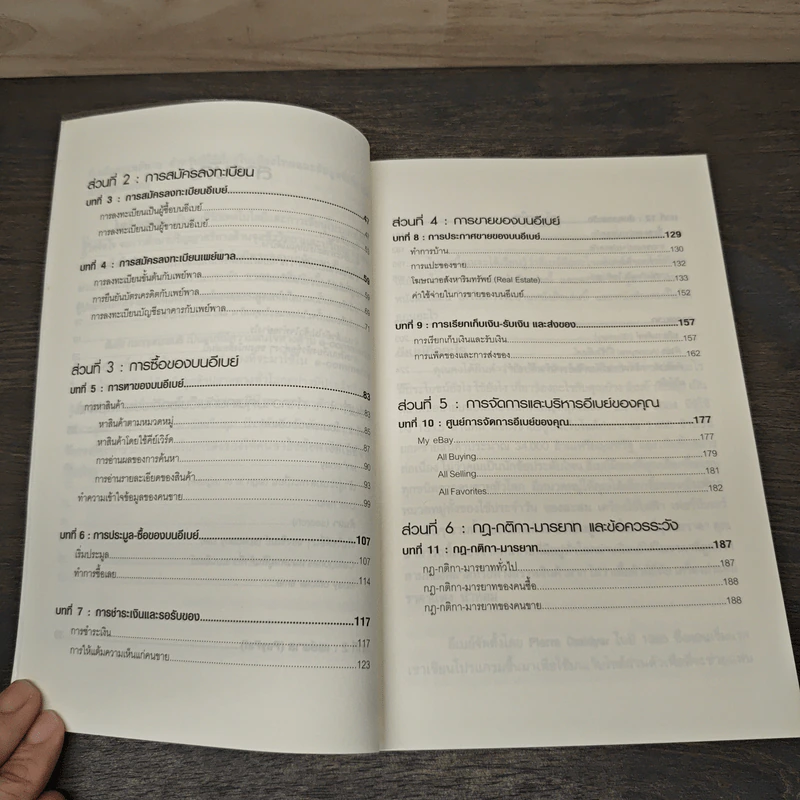 ส่วนที่ 2 : การสมัครลงทะเบียน
บทที่ 3 : การสมัครลงทะเบียนอีเบย์.....47
การลงทะเบียนเป็นผู้ซื้อบนอีเบย์
การลงทะเบียนเป็นผู้ขายบนอีเบย์.....53
บทที่ 4 : การสมัครลงทะเบียนเพย์พาล.....59
การลงทะเบียนขั้นต้นกับเพย์พาล.....59
การยืนยันบัตรเครดิตกับเพย์พาล
การลงทะเบียนบัญชีธนาคารกับเพย์พาล.....71
ส่วนที่ 3 : การซื้อของบนอีเบย์
บทที่ 5 : การหาของบนอีเบย์.....83
การหาสินค้า.....83
หาสินค้าตามหมวดหมู่.....85
หาสินค้าโดยใช้คีย์เวิร์ด.....87
การอ่านผลของการค้นหา.....90
การอ่านรายละเอียดของสินค้า.....93
ทำความเข้าใจข้อมูลของคนขาย.....99
บทที่ 6 : การประมูล-ซื้อของบนอีเบย์.....107
เริ่มประมูล.....107
ทำการซื้อเลย.....114
บทที่ 7 : การชำระเงินและรอรับของ.....117
การชำระเงิน.....117
การให้แต้มความเห็นแก่คนขาย.....123
ส่วนที่ 4 : การขายของบนอีเบย์
บทที่ 8 : การประกาศขายของบนอีเบย์.....129
ทำการบ้าน.....130
การแปะของขาย.....132
โฆษณาอสังหาริมทรัพย์ (Real Estate).....133
ค่าใช้จ่ายในการขายของบนอีเบย์.....152
บทที่ 9 : การเรียกเก็บเงิน-รับเงิน และส่งของ.....157
การเรียกเก็บเงินและรับเงิน.....157
การแพ็คของและการส่งของ.....162
ส่วนที่ 5 : การจัดการและบริหารอีเบย์ของคุณ
บทที่ 10 : ศูนย์การจัดการอีเบย์ของคุณ.....177
My eBay.....177
All Buying.....179
All Selling.....181
All Favorites.....182
ส่วนที่ 6 : กฎ-กติกา-มารยาท และข้อควรระวัง
บทที่ 11 : กฎ-กติกา-มารยาท.....187
กฎ-กติกา-มารยาททั่วไป.....187
กฎ-กติกา-มารยาทของคนซื้อ.....188
กฎ-กติกา-มารยาทของคนขาย.....188